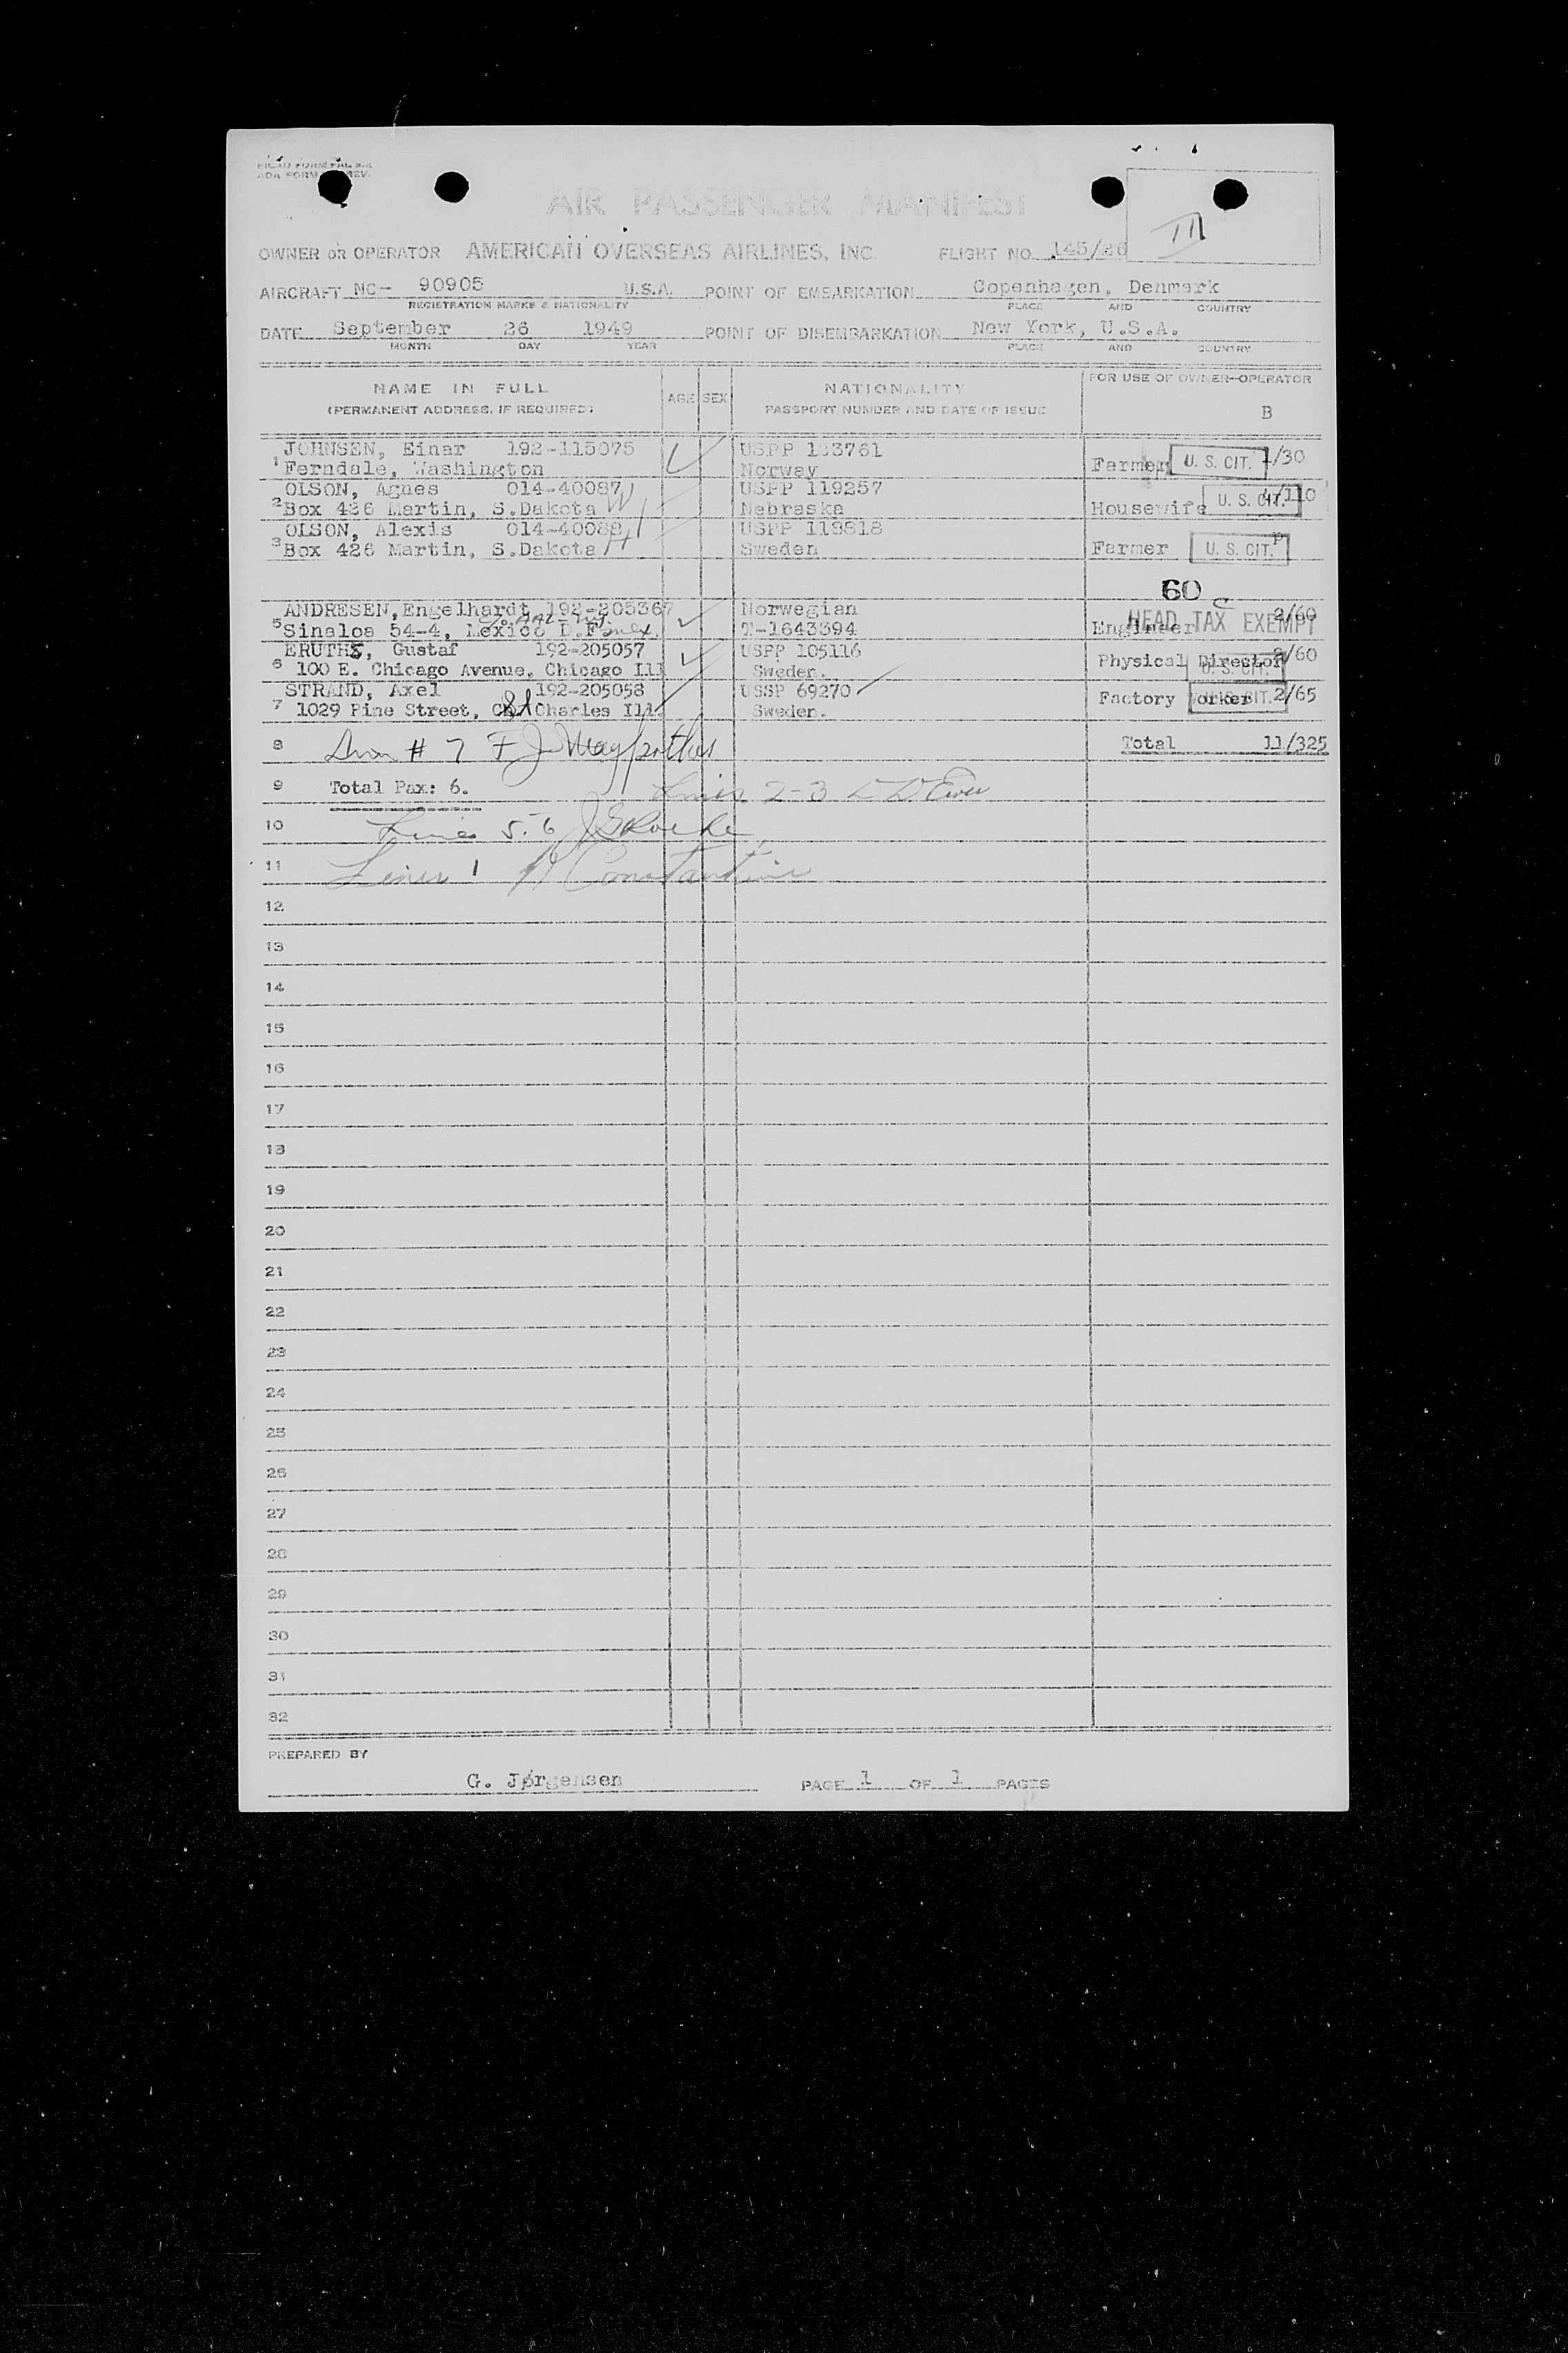 AIR PASSENGER MANIFEST
III
OWNER OR OPERATOR AMERICAN OVERSEAS AIRLINES, INC. FLIGHT NO. 145/26
AIRCRAFT NC- 90905 U.S.A. POINT OF EMBARKATION Copenhagen, Denmark
REGISTRATION MARKS & NATIONALITY PLACE AND COUNTRY
DATE September 26 1949 POINT OF DISEMBARKATION New York, U.S.A.
MONTH DAY YEAR PLACE AND COUNTRY
NAME IN FULL AGE SEX NATIONALITY FOR USE OF OWNER-OPERATOR
(PERMANENT ADDRESS, IF REQUIRED) PASSPORT NUMBER AND DATE OF ISSUE B
JOHNSEN, Einar 192-115075 USPP 123761
1 Ferndale, Washington Norway Farmer U. S. CIT. 1/30
OLSON, Agnes 014-40087 USPP 119257
2 Box 426 Martin, S.Dakota W Nebraska Housewife U. S. CIT. 4/110
OLSON, Alexis 014-40088 USPP 119818
3 Box 426 Martin, S.Dakota H Sweden Farmer U. S. CIT. P
60
ANDRESEN, Engelhardt 192-205367 Norwegian HEAD TAX EXEMPT 2/60
5 Sinaloa 54-4, Mexico D.F. Mex. T-1643394 Engineer
ERUTHS, Gustaf 192-205057 USPP 105116
6 100 E. Chicago Avenue, Chicago Ill Sweden. Physical Director U. S. CIT. 2/60
STRAND, Axel 192-205058 USSP 69270
7 1029 Pine Street, St Charles Ill. Sweden. Factory worker U. S. CIT. 2/65
8 # 7 F J Total 11/325
9 Total Pax: 6. Lines 2-3
10 Lines 5-6
11 Lines 1 Constantine
12
13
14
15
16
17
18
19
20
21
22
23
24
25
26
27
28
29
30
31
32
PREPARED BY
G. Jørgensen PAGE 1 OF 1 PAGES